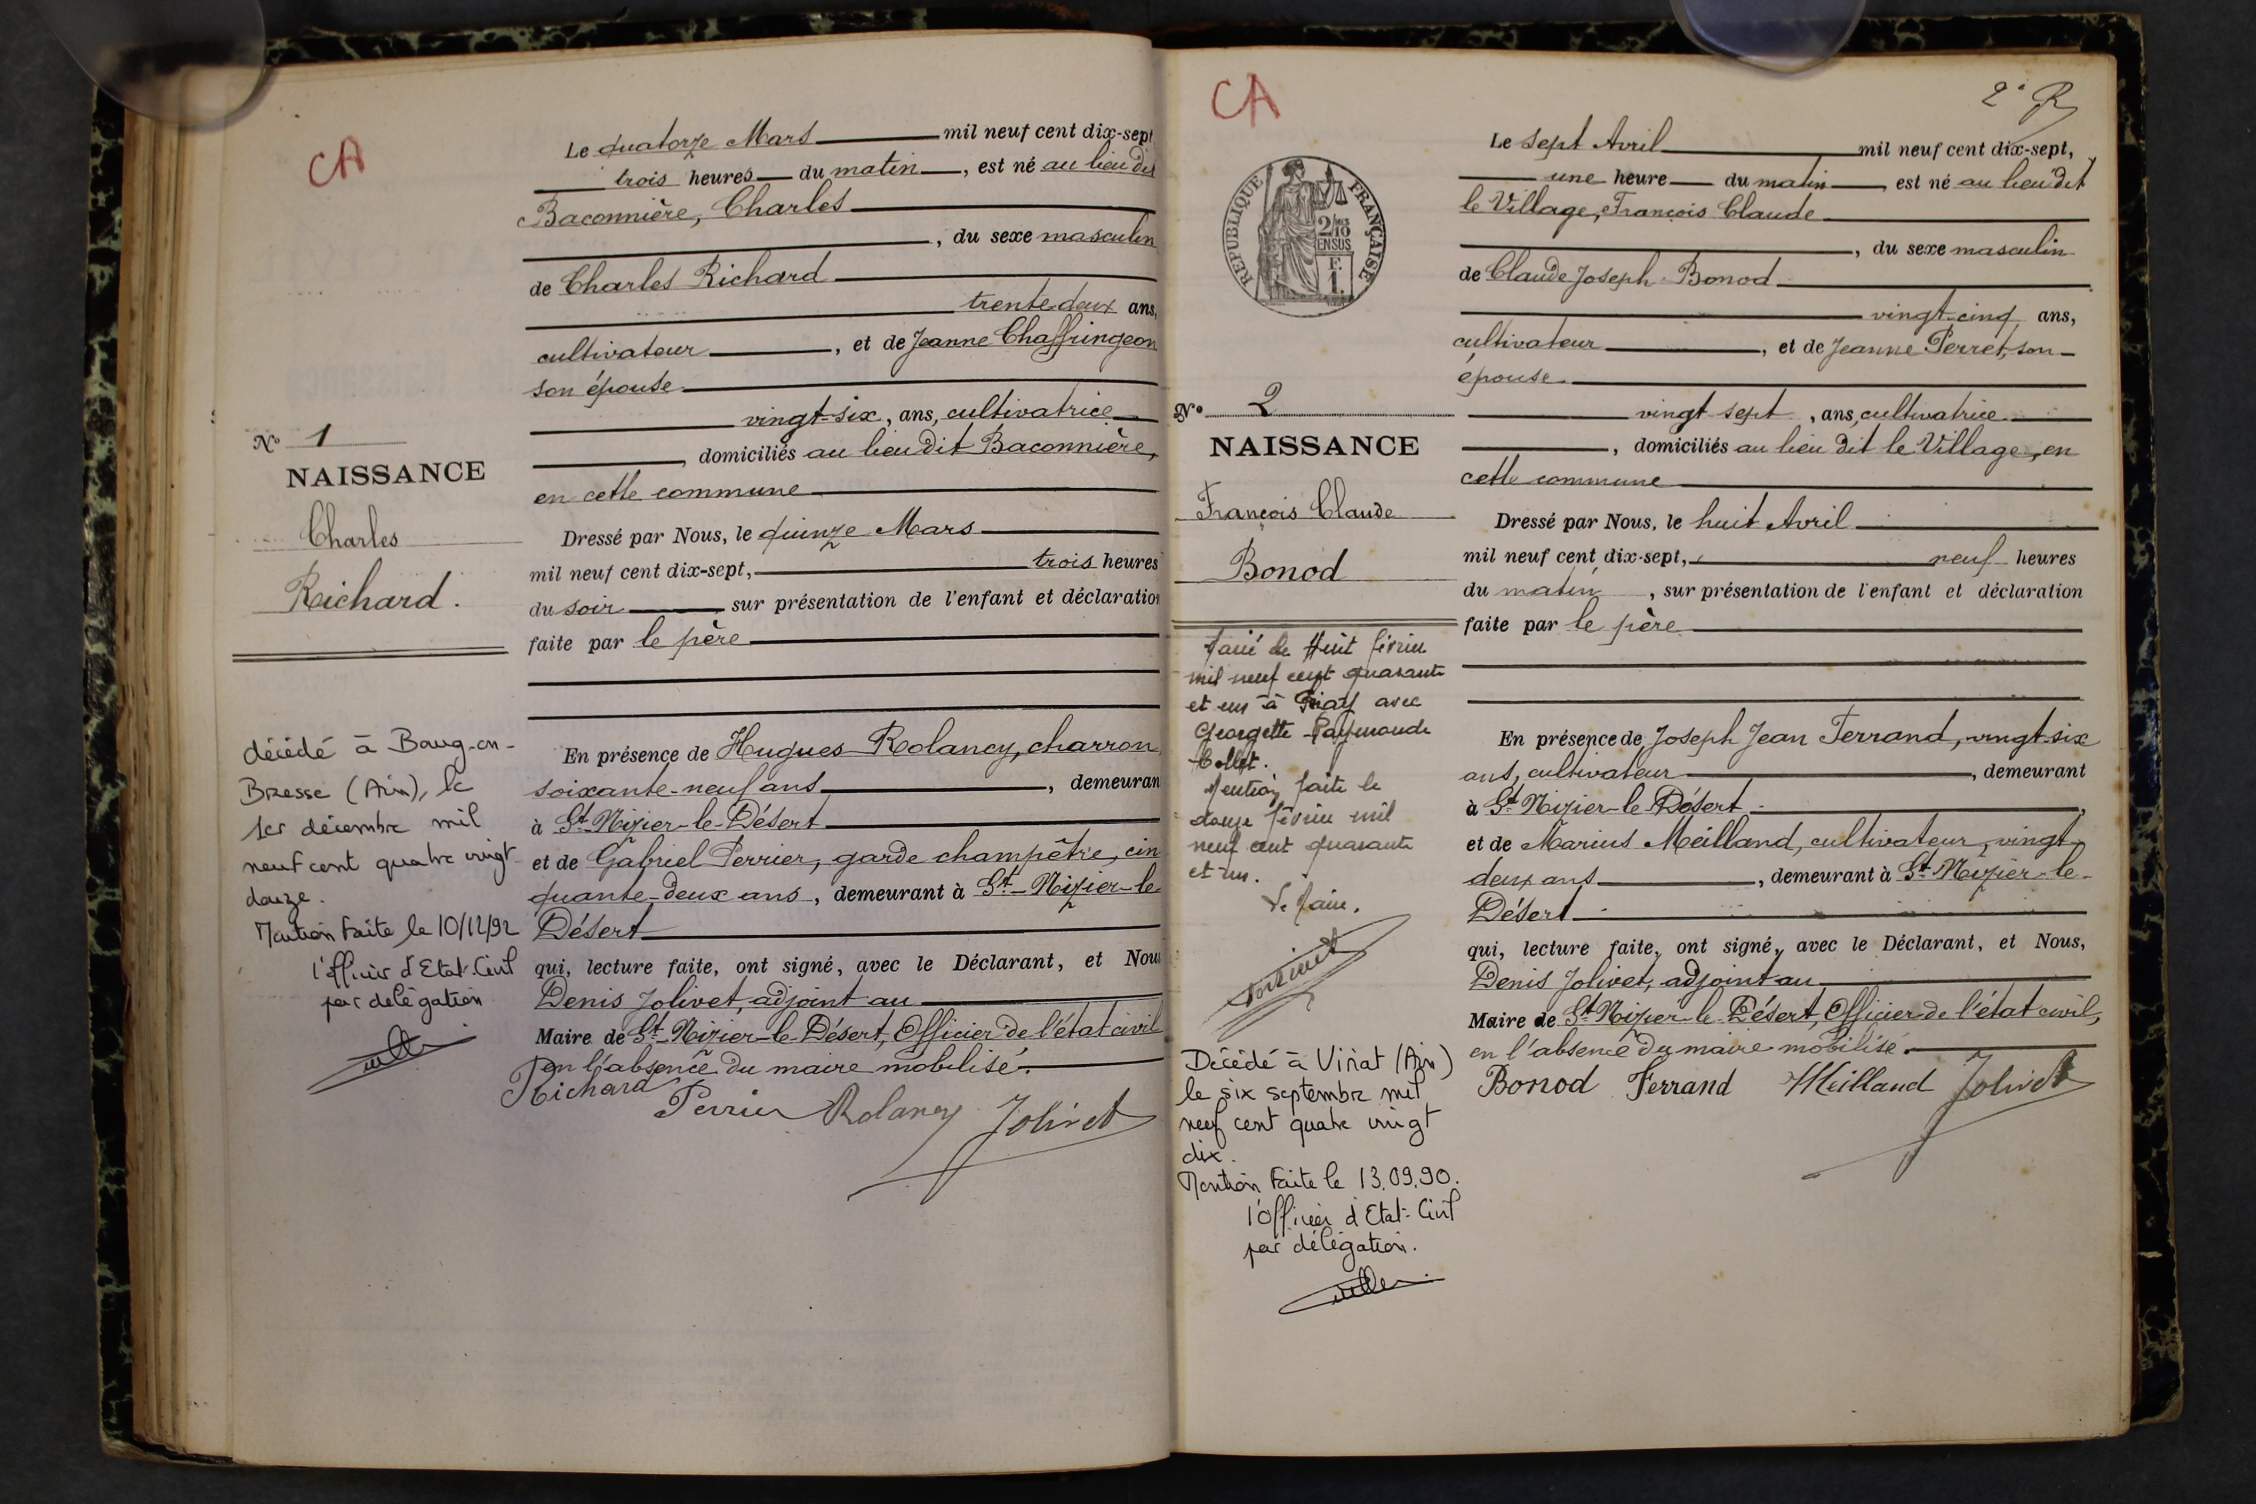 CA
Le quatorze Mars mil neuf cent dix-sept
trois heures du matin, est né au lieu dit
Baconnière, Charles
, du sexe masculin
de Charles Richard
trente deux ans,
cultivateur, et de Jeanne Chaffringeon
son épouse
vingt-six, ans, cultivatrice
, domiciliés au lieu dit Baconnière,
en cette commune
Dressé par Nous, le quinze Mars
mil neuf cent dix-sept, trois heures
du soir, sur présentation de l'enfant et déclaration
faite par le père
En présence de Hugues Rolancy, charron
soixante-neuf ans, demeuran
à St Nizier-le-Désert
et de Gabriel Perrier, garde champêtre, cin
quante-deux ans, demeurant à St-Nizier-le-
Désert
qui, lecture faite, ont signé, avec le Déclarant, et Nou
Denis Jolivet, adjoint au
Maire de St-Nizier-le-Désert, Officier de l'état civil
en l'absence du maire mobilisé.
Richard Perrier Rolancy Jolivet
No 1
NAISSANCE
Charles
Richard.
décédé à Bourg-en-
Bresse (Ain), le
1er décembre mil
neuf cent quatre vingt
douze.
Mention faite le 10/12/92
l'officier d'Etat-Civil
par délégation
CA
2e R
Le sept Avril mil neuf cent dix-sept,
une heure du matin, est né au lieu dit
le Village, François Claude
, du sexe masculin
de Claude Joseph Bonod
vingt-cinq ans,
cultivateur, et de Jeanne Perret, son
épouse
vingt sept, ans, cultivatrice
, domiciliés au lieu dit le Village, en
cette commune
Dressé par Nous, le huit Avril
mil neuf cent dix-sept, neuf heures
du matin, sur présentation de l'enfant et déclaration
faite par le père
En présence de Joseph Jean Ferrand, vingt-six
ans, cultivateur, demeurant
à St Nizier-le-Désert
et de Marius Meilland, cultivateur, vingt-
deux ans, demeurant à St Nizier-le-
Désert
qui, lecture faite, ont signé, avec le Déclarant, et Nous,
Denis Jolivet, adjoint au
Maire de St Nizier-le-Désert, Officier de l'état civil,
en l'absence du maire mobilisé.
Bonod Ferrand Meilland Jolivet
RÉPUBLIQUE FRANÇAISE
2/10
EN SUS
F.
1.
No 2
NAISSANCE
François Claude
Bonod
Marié le Huit février
mil neuf cent quarante
et un à avec
Georgette Raymonde
Collet.
Mention faite le
douze février mil
neuf cent quarante
et un.
Le Maire.
Décédé à Viriat (Ain)
le six septembre mil
neuf cent quatre vingt
dix.
Mention faite le 13.09.90.
l'Officier d'Etat-Civil
par délégation.